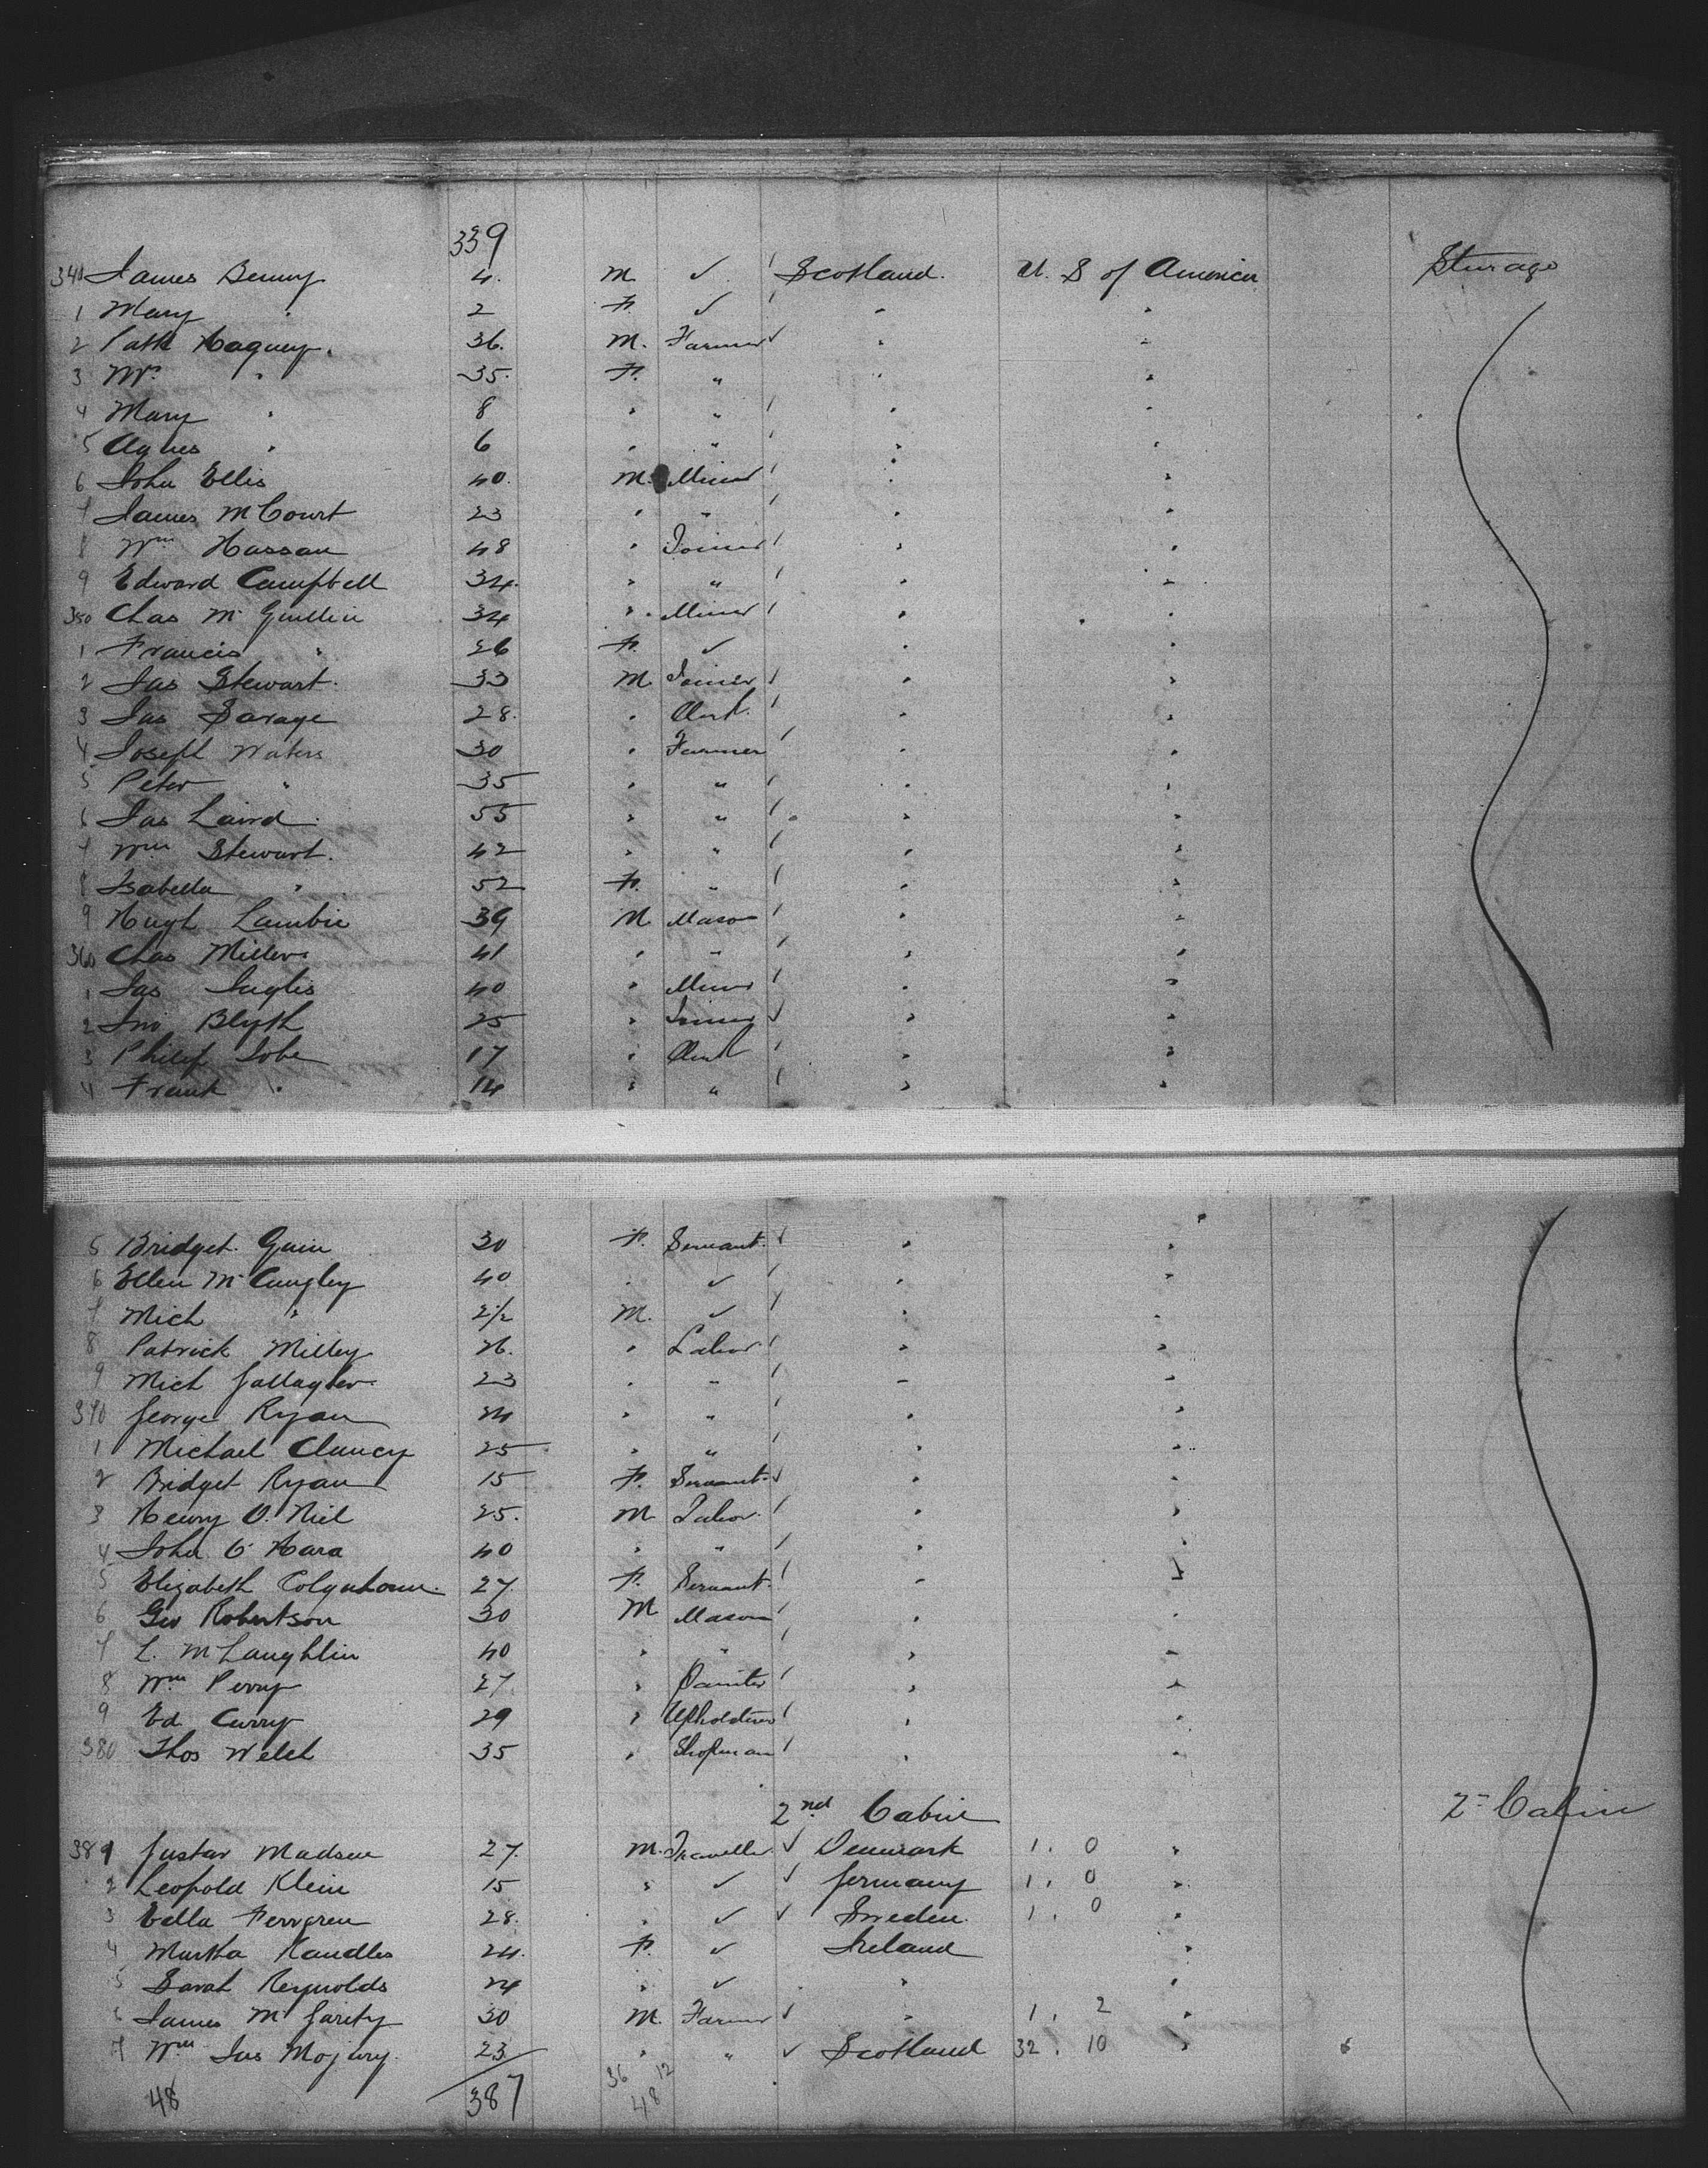 339
340 James Benny 4. M ✓ Scotland. U. S of America Sturage
1 Mary " 2 F. ✓ " "
2 Patk Haguey. 36. M. Farmer " "
3 Mrs " 35. F. " " "
4 Mary " 8 " " " "
5 Agnes " 6 " " " "
6 John Ellis 40. M. Miner " "
7 James McCourt 23 " " " "
8 Wm Hassan 48 " Joiner " "
9 Edward Campbell 34. " " " "
350 Chas Mc Guillin 34 " Miner " "
1 Francis " 26 F. ✓ " "
2 Jas Stewart. 33 M. Joiner " "
3 Jas Savage 28. " Clerk. " "
4 Joseph Waters 30 " Farmer " "
5 Peter " 35 " " " "
6 Jas Laird 55 " " " "
7 Wm Stewart. 42 " " " "
8 Isabella " 52 F. " " "
9 Hugh Lambie 39 M. Mason " "
360 Chas Millers 41 " " " "
1 Jas Inglis 40 " Miner " "
2 Jno Blyth 25 " Joiner " "
3 Philip Tobe 17 " Clerk " "
4 Frank " 14 " " " "
5 Bridget 30 F. Servant. " "
6 Ellen Mc 40 " ✓ " "
7 Mich " 2 1/2 M. ✓ " "
8 Patrick Milley 26. " Labor " "
9 Mich Gallagher 23 " " " "
370 George Ryan 24 " " " "
1 Michael Clancy 25 " " " "
2 Bridget Ryan 15 F. Servant. " "
3 Henry O. Niel 25. M Labor. " "
4 John O'Hara 40 " " " "
5 Elizabeth Colquhoun. 27. F. Servant. " "
6 Geo Robertson 30 M Mason " "
7 L. McLaughlin 40 " " " "
8 Wm Perry 27. " Painter " "
9 Ed. Curry 29 " Upholsterer " "
380 Thos Welch 35 " Shopman " "
2nd Cabin 2nd Cabin
381 Gustav Madsen 27. M. Traveller ✓ Denmark 1. 0 "
2 Leopold Klein 15 " ✓ ✓ Germany 1. 0 "
3 Edla 28. " ✓ ✓ Sweden. 1. 0 "
4 Martha Randles 24. F. ✓ Ireland "
5 Sarah Reynolds 24 " ✓ " "
6 James Mc Garity 30 M. Farmer ✓ " 1. 2 "
7 Wm Jas 23 " " ✓ Scotland 32. 10 " "
48 387 36 12
48